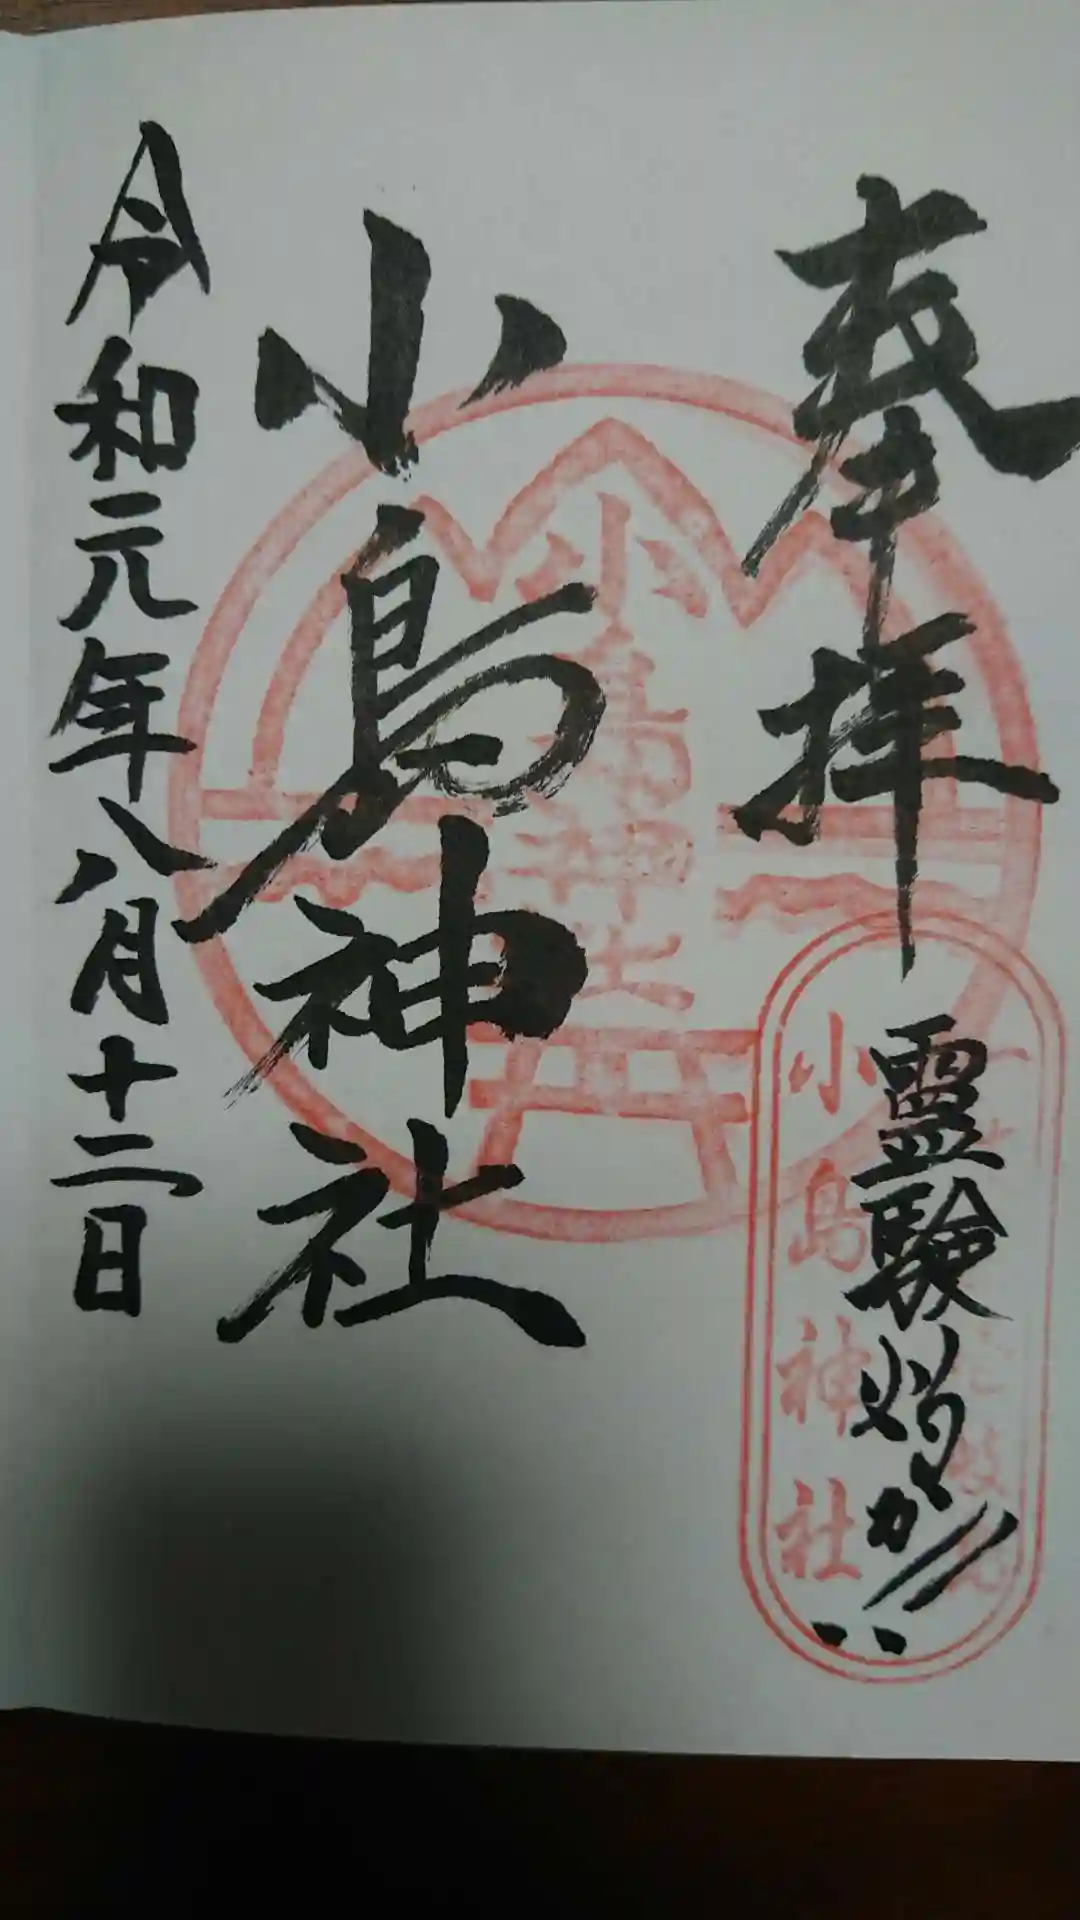 奉拝
霊験灼か!!
小島神社
令和元年八月十二日
小島神社
小島神社